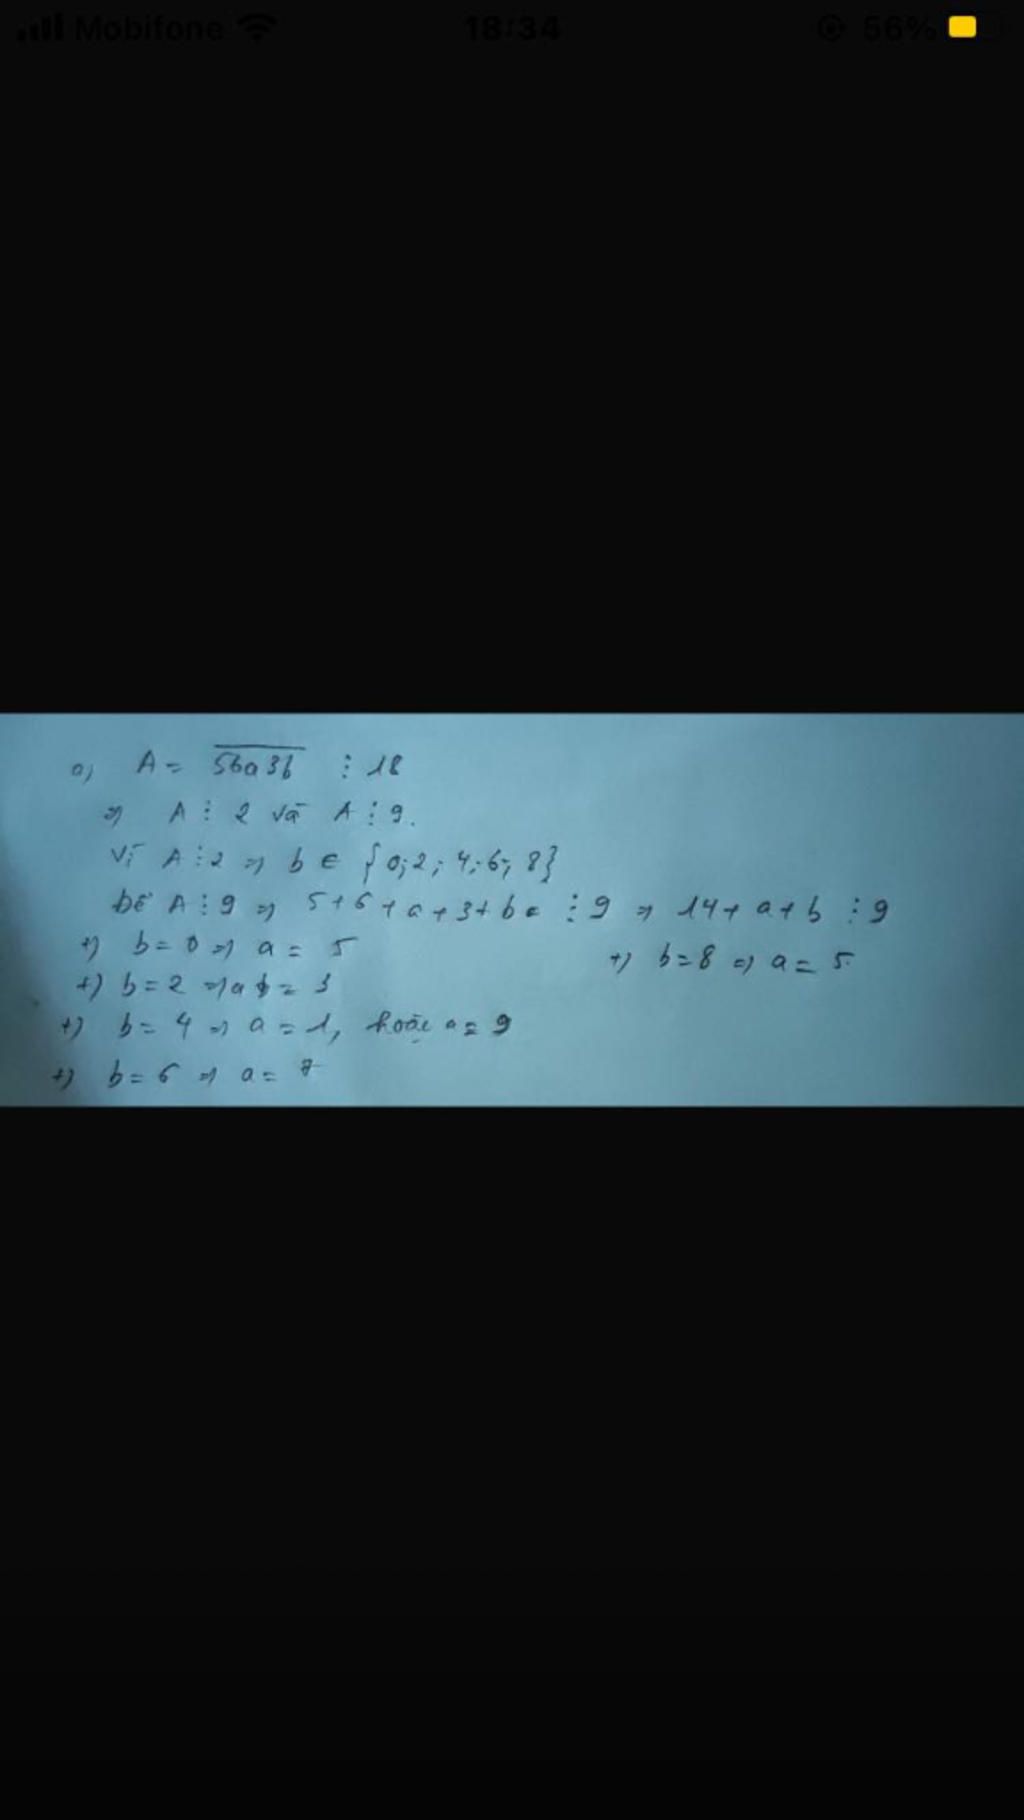 Mobifone 18:34 56%
a) A = 56a3b ⋮ 18
=> A ⋮ 2 và A ⋮ 9.
Vì A ⋮ 2 => b ∈ {0; 2; 4; 6; 8}
Để A ⋮ 9 => 5 + 6 + a + 3 + b ⋮ 9 => 14 + a + b ⋮ 9
+) b = 0 => a = 5
+) b = 8 => a = 5
+) b = 2 => a = 3
+) b = 4 => a = 1, hoặc a = 9
+) b = 6 => a = 7